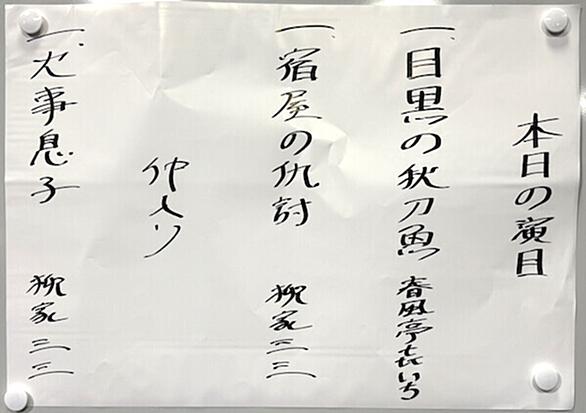 本日の演目
一、目黒の秋刀魚 春風亭㐂いち
一、宿屋の仇討 柳家三三
仲入り
一、火事息子 柳家三三